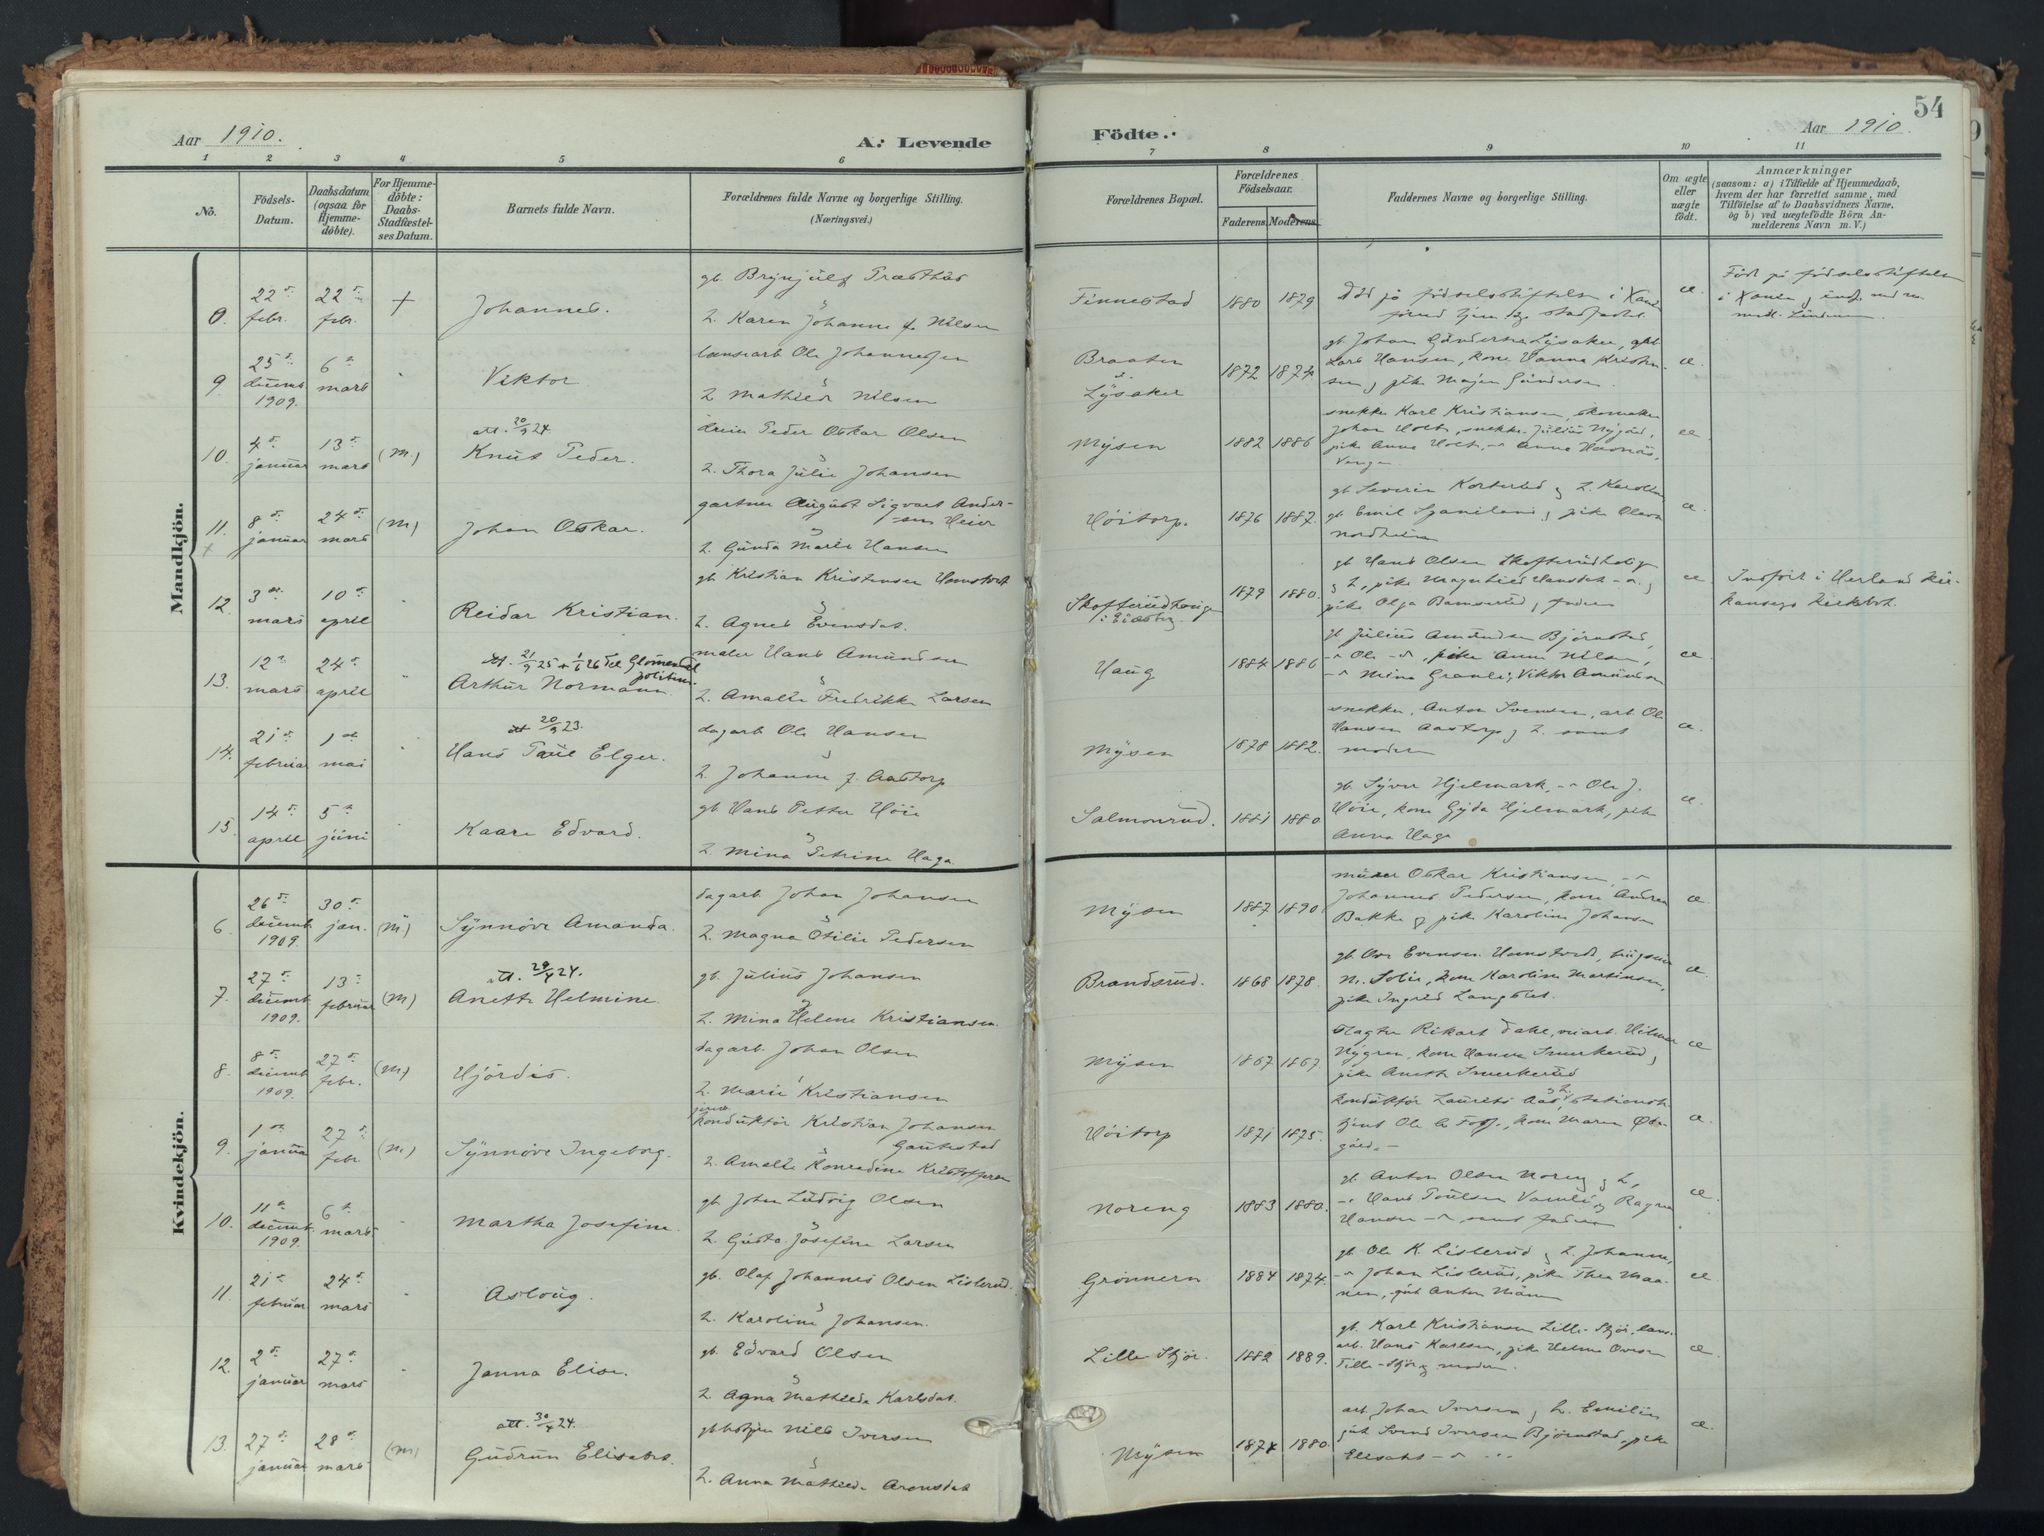 54
Aar 1910.
A. Levende
Födte.
Aar 1910.
1 2 3 4 5 6 7 8 9 10 11
No.
Födsels-
Datum.
Daabsdatum
(ogsaa for
Hjemme-
döbte).
For Hjemme-
döbte:
Daabs-
Stadfæstel-
ses Datum.
Barnets fulde Navn.
Forældrenes fulde Navne og borgerlige Stilling.
(Næringsvei.)
Forældrenes Bopæl.
Forældrenes
Födselsaar.
Faderens.
Moderens.
Faddernes Navne og borgerlige Stilling.
Om ægte
eller
uægte
födt.
Anmærkninger
(saasom: a) i Tilfælde af Hjemmedaab,
hvem der har forrettet samme, med
Tilföielse af to Daabsvidners Navne,
og b) ved uægtefödte Börn An-
melderens Navn m. V.)
Mandkjön.
22 febr. 22 febr. + Johannes.
gb. Brynjulf Træsthus
Karen Johanne f. Nilsen
Finnestad 1880 1879
Död på födselsstiftelsen i
Född på födselsstiftelsen
9 25 decemb. 1909. 6 mars Viktor
Ole Johannesen
Mathilde Nilsen
Braaten
Lÿsaker 1872 1874
gb Johan Gundersen Lÿsaker,
Lars Hansen, kone Hanna Kristian-
sen, pike Majen Gundersen. æ.
10. 4 januar 13 mars (M.) att. 20/9 24. Knut Peder.
Peder Oskar Olsen
Thora Julie Johansen
Mÿsen 1882 1886
snekker Karl Kristiansen, skomaker
Johan Holt, snekker Julius Nygård,
pike Anna Holt, Anna
æ.
11. 8 januar 24 mars (M) Johan Oskar.
gartner August Sigvart Ander-
sen Heier
Gunda Marie Hansen
Höitorp. 1876 1887.
gb Severin Korterud & Karoline
gb Emil Spaniland, pike Olava
Nordheim æ.
12. 3 mars 10 april Reidar Kristian.
gb Kristian Kristensen Hamstvet
Agnes Evensdat.
Skofterudhaugen
i Eidsberg. 1879 1880.
gb Hans Olsen
pike Olga Bamserud, faderen æ.
Indfört i Herland kir-
13. 12 mars 24 april att. 21/9 25 + 1/6 26 til Glommendal
Arthur Normann.
maler Hans Amundsen
Amalie Fredrikke Larsen
Haug 1884 1886
gb Julius Amundsen Björnstad,
Ole, pike Anna Nilsen,
Mina Granli, Viktor Amundsen æ.
14. 21 februar 1 mai att 20/9 23. Hans Paul Elger.
dagarb Ole Hansen
Johanne f. Aastorp
Mÿsen 1878 1882.
snekker, Anton Svensen, arb. Ole
Hansen Aastorp & samt
moderen æ.
15. 14 april 5 juni Kaare Edvard.
gb. Hans Petter Höie
Mina Petrine Haga
Salmonrud. 1881 1880
gb. Syver Hjelmark, Ole J.
Höie, kone Gyda Hjelmark, pike
Anna Haga æ.
Kvindekjön.
6. 26 decemb. 1909. 30 jan. (M) Synnöve Amanda.
dagarb Johan Johansen
Magna Otilie Pedersen
Mÿsen 1887 1890.
murer Oskar Kristiansen,
Johannes Pedersen, kone Andrea
Bakke & pike Karoline Johansen æ.
7. 27 decemb. 1909. 13 februar (M) att. 29/4 24. Anette Helmine.
gb. Julius Johansen
Mina Helene Kristiansen.
Brandsrud. 1868 1878.
gb. Ove Evensen Hamstvedt,
N. Solie, kone Karoline Martinsen,
pike Ingrid Langslet. æ.
8. 8 decemb. 1909. 27 febr. (M) Hjördis.
dagarb. Johan Olsen
Marie Kristiansen
Mÿsen 1867 1867.
slagter Rikart Dahl, Hilmar
Nÿgren, kone Hanna Smerkerud,
pike Aneth Smerkerud æ
9. 1 januar 27 febr (M) Synnöve Ingeborg.
konduktör Kristian Johansen
Gautestad
Amalie Konradine Kristoffersen
Höitorp 1871 1875.
konduktör Laurits Aas, stations-
Ole A Foss, kone Maren
æ.
10. 11 decemb. 1909. 6 mars Martha Josefine.
gb. Johan Ludvig Olsen
Gusta Josefine Larsen
Noreng 1883 1880.
gb Anton Olsen Noreng &
Hans Poulsen, Ragna
Hansen samt faderen æ.
11. 21 februar 24 mars Aslaug.
gb. Olaf Johannes Olsen Listerud.
Karoline Johansen.
Grönnern 1884 1874.
gb. Ole K. Listerud & Johanne,
Johan Listerud, pike Thea Maa-
nen, gut Anton Maanen æ.
12. 2 januar 27 mars Janna Elise.
gb. Edvard Olsen
Agna Mathilde Karlsdat.
Lille Skjör. 1882 1889.
gb. Karl Kristiansen Lille-Skjör,
arb. Hans Karlsen, pike Helma Ovesen
Lille-Skjör & moderen. æ.
13. 27 januar 28 mars (M) att. 30/4 24. Gudrun Elisabet.
Nils Iversen
Anna Mathilde Aronsdat
Mÿsen 1874 1880.
arb. Johan Iversen & Emilie,
gut Svend Iversen Björnstad, pike
Elisabet æ.